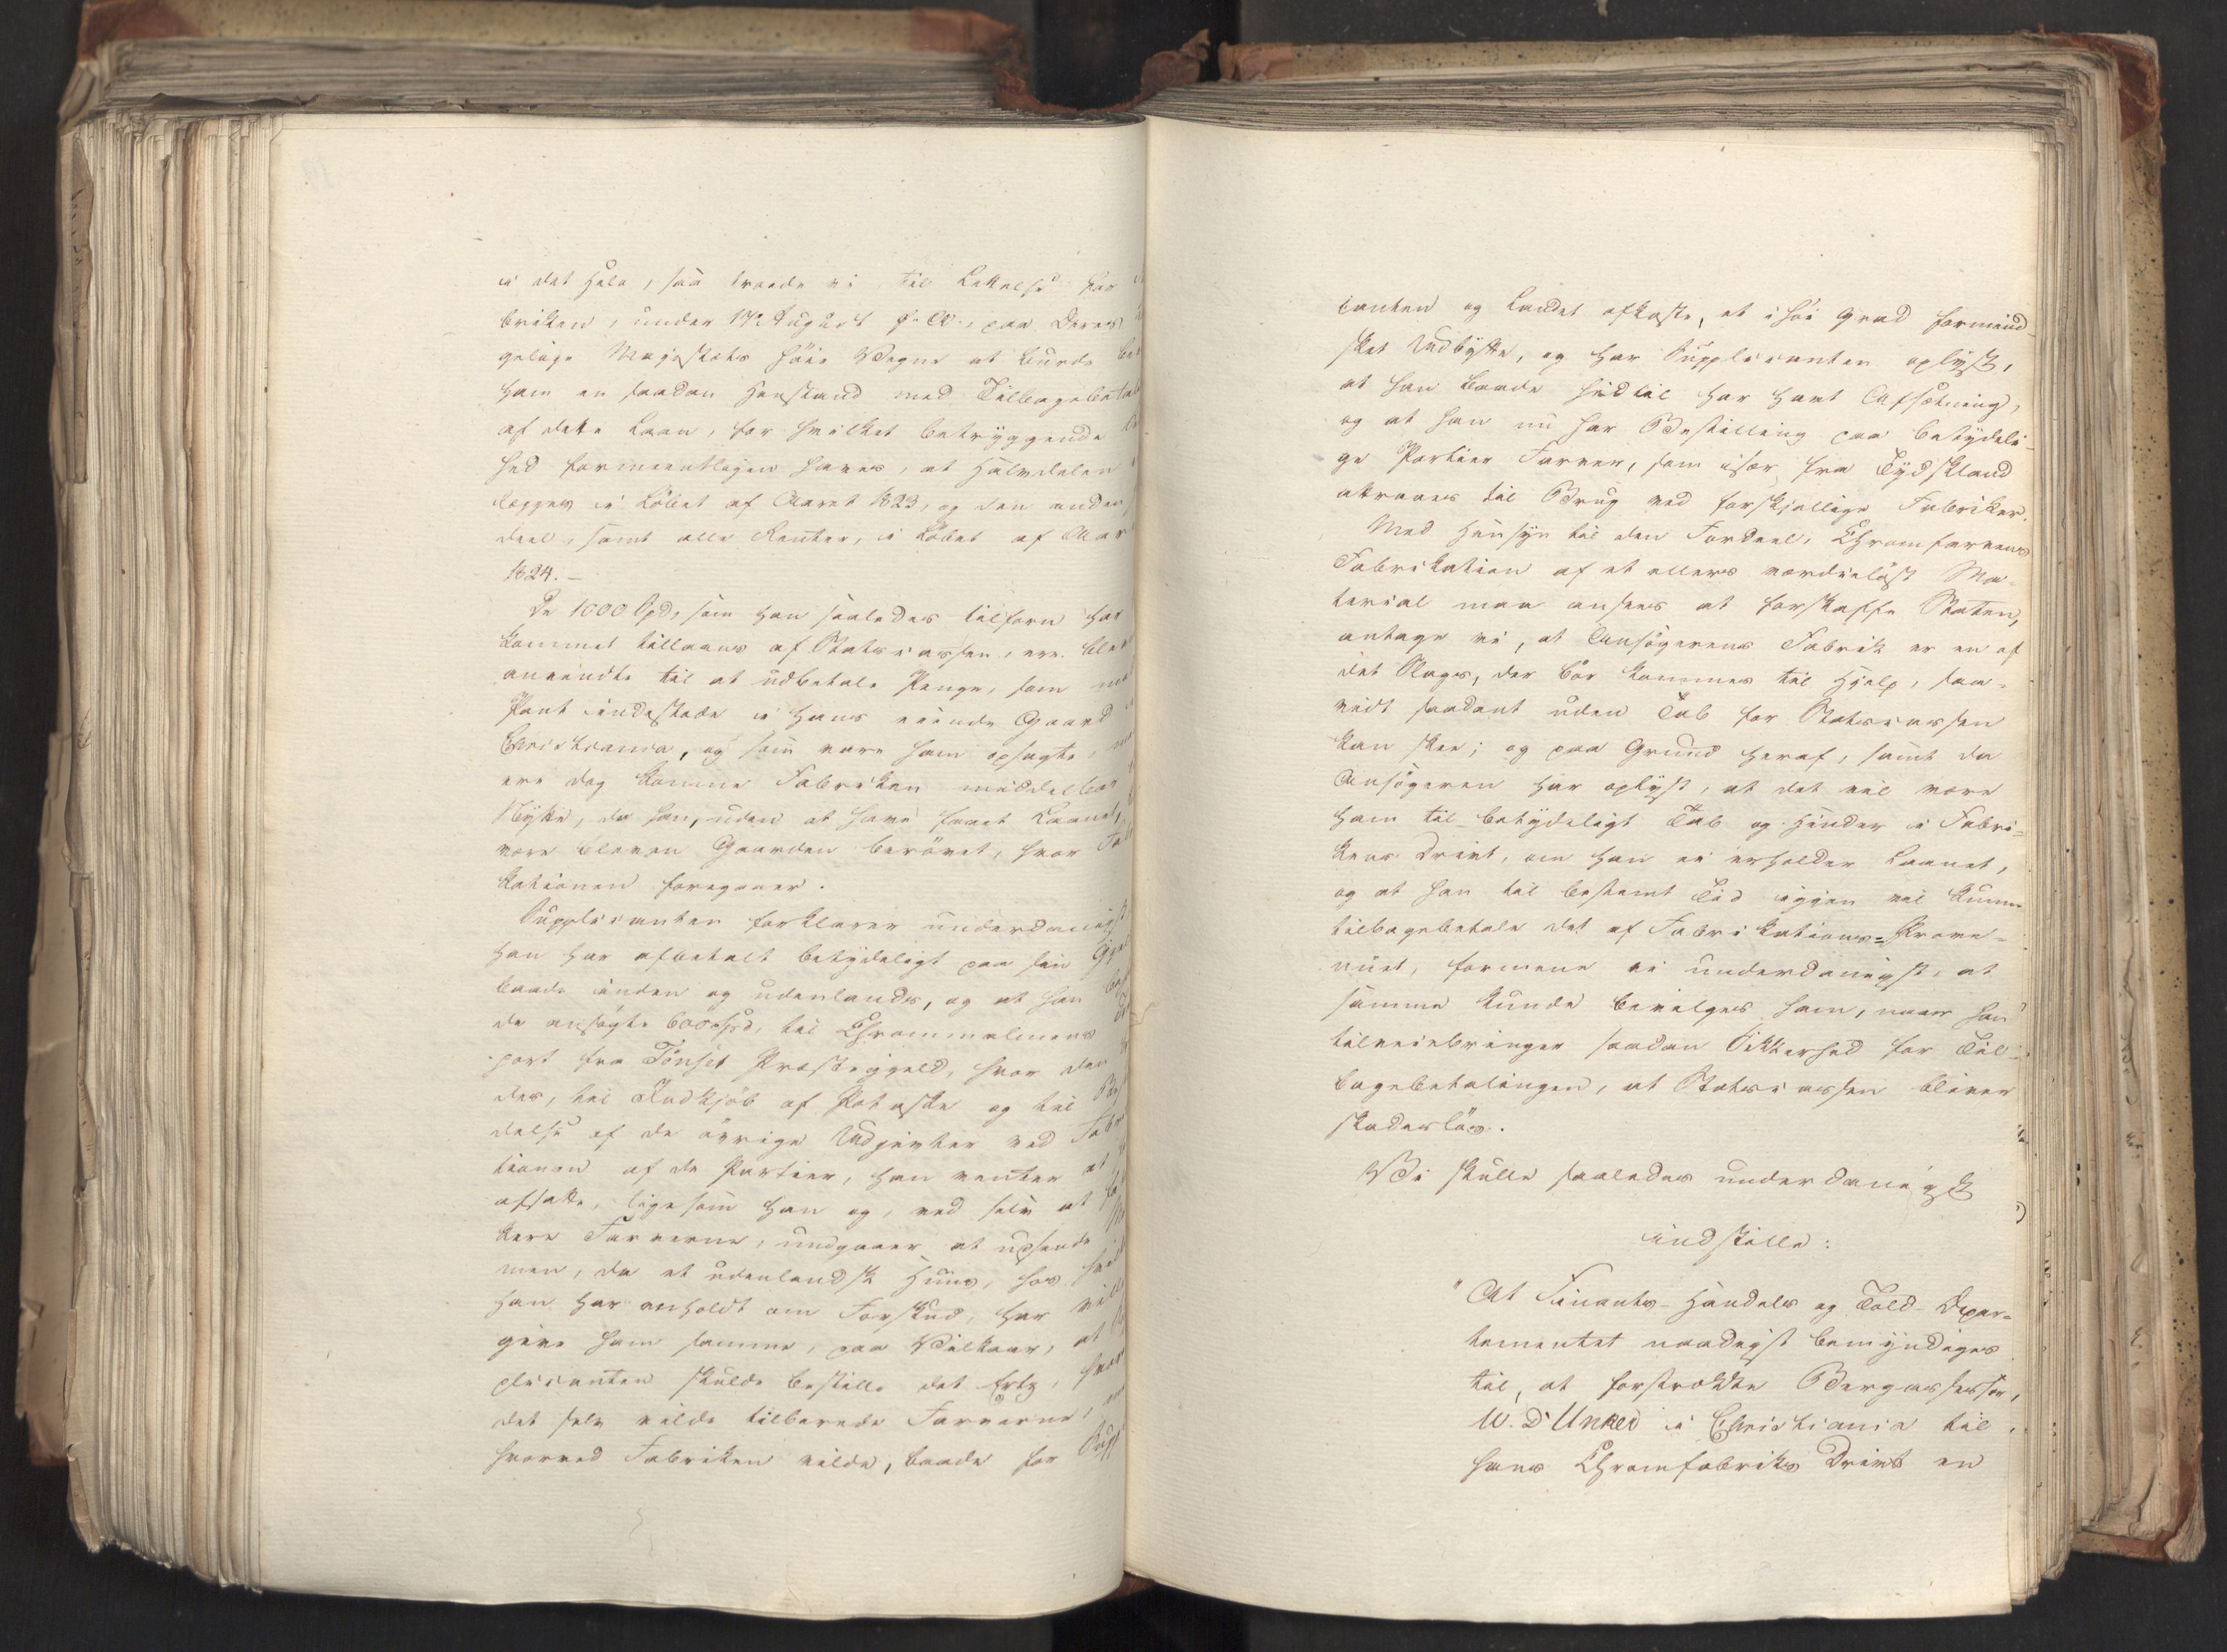 i det Hele, saa troede vi til Lettelse for
briken, under 17 August f. A., paa Deres
gelige Majestæts høie Vegne at burde
ham en saadan Henstand med Tilbagebetal
af dette Laan, for hvilket betryggende
hed formeentligen haves, at Halvdelen
lægges i Løbet af Aaret 1823, og den anden
deel, samt alle Renter, i Løbet af Aar
1824. –
De 1000 Spd, som han saaledes tilforn har
kommet tillaans af Statscassen, ere blev
anvendte til at udbetale Penge, som
Pant indestode i Hans eiende Gaard
Christiania, og som vare ham opsagte,
ere dog komne Fabriken middelbar
Nytte, da han, uden at have faaet Laanet,
være bleven Gaarden berövet, hvor Fab
kationen foregaaer.
Supplicanten forklarer underdanigst
han har afbetalt betydeligt paa sin Gjæl
baade inden og udenlands, og at han
de ansögte 600 Spd, til Chrommalmens
port fra Tönset Præstegjeld, hvor den
des, til Indkjöb af Potaske og til
delse af de övrige Udgivter ved Fabri
tionen af de Partier, han venter at
afsatte, ligesom han og, ved selv at
kere Farverne, undgaaer at udsende
men, da et udenlandsk Huus, hos
han har anholdt om Forskud, har vil
give ham samme, paa Vilkaar, at
plicanten skulde bestille det Ertz,
det selv vilde tilberede Farverne,
hvorved Fabriken vilde, baade for Suppl
canten og Landet afkaste, et i høi Grad formind-
sket Udbytte, og har Supplicanten oplyst,
at han baade hidtil har havt Afsætning,
og at han nu har Bestilling paa betydeli-
ge Partier Farver, som især fra Tydskland
attraaes til Brug ved forskjellige Fabriker.
Med Hensyn til den Fordeel, Chromfarvens
Fabrikation af et ellers værdieløst Ma-
terial maa ansees at forskaffe Staten,
antage vi, at Ansögerens Fabrik er en af
det Slags, der bør kommes til Hjelp, saa-
vidt saadant uden Tab for Statscassen
kan skee; og paa Grund heraf, samt da
Ansögeren har oplyst, at det vil være
ham til betydeligt Tab og Hinder i Fabri-
kens Drivt, om han ei erholder Laanet,
og at han til bestemt Tid igjen vil kunne
tilbagebetale det af Fabrikations-Prove-
nüet, formene vi underdanigst, at
samme kunde bevilges ham, naar han
tilveiebringer saadan Sikkerhed for Til-
bagebetalingen, at Statscassen bliver
skadesløs.
Vi skulle saaledes underdanigst
indstille:
"At Finants- Handels og Told- Depar-
tementet naadigst bemyndiges
til, at forstrække Bergassessor,
W. D Unker i Christiania til
hans Chromfabriks Drivt en